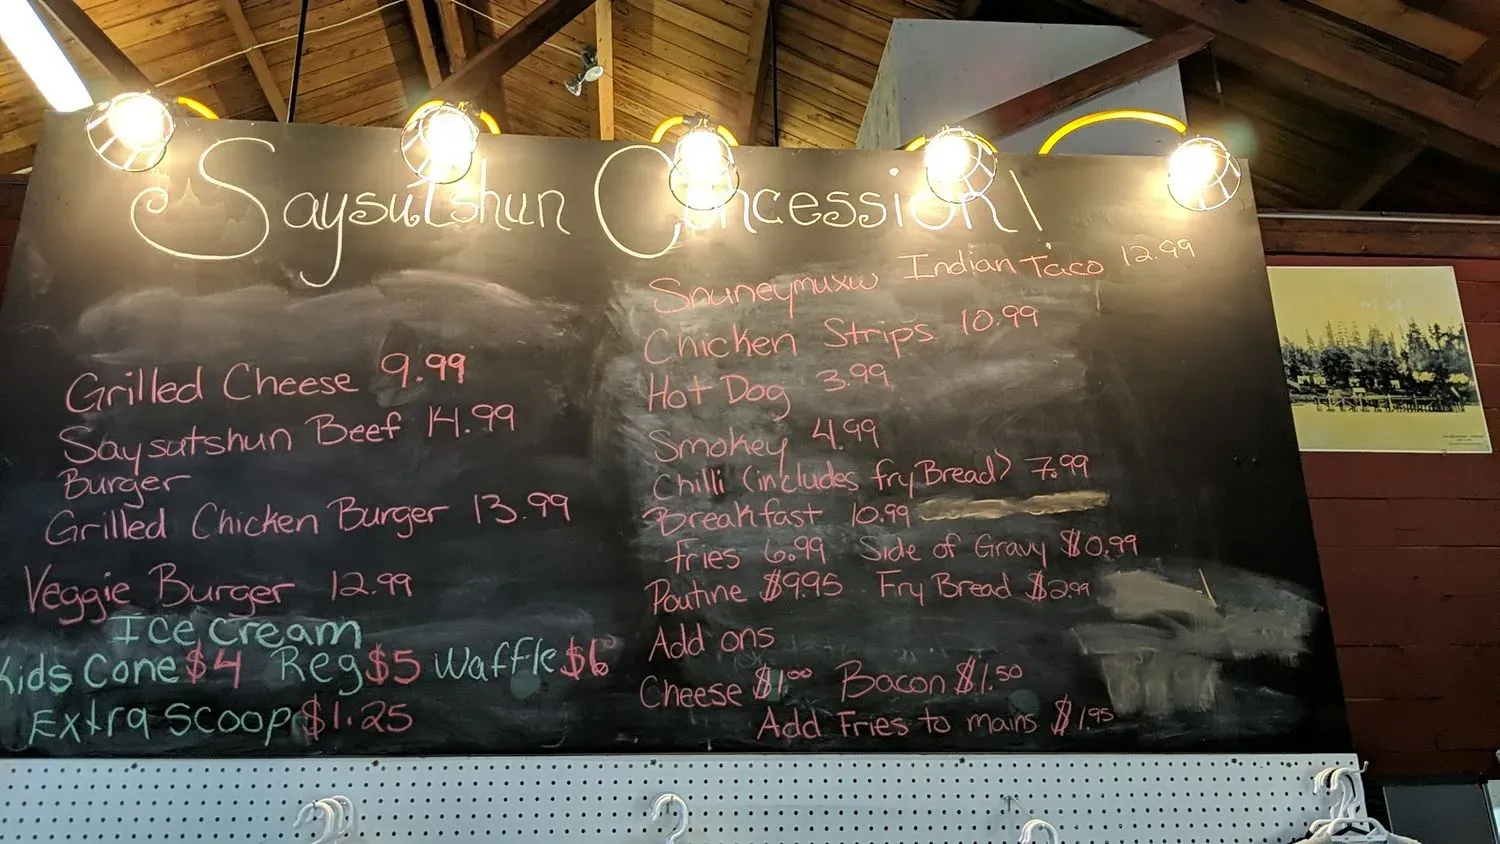 Saysutshun Concession!
Grilled Cheese 9.99
Saysutshun Beef 14.99
Burger
Grilled Chicken Burger 13.99
Veggie Burger 12.99
Ice cream
Kids Cone $4 Reg $5 Waffle $6
Extra Scoop $1.25
Snuneymuxw Indian Taco 12.99
Chicken Strips 10.99
Hot Dog 3.99
Smokey 4.99
Chilli (includes fry Bread) 7.99
Breakfast 10.99
Fries 6.99 Side of Gravy $0.99
Poutine $9.95 Fry Bread $2.99
Add ons
Cheese $1.00 Bacon $1.50
Add Fries to mains $1.95